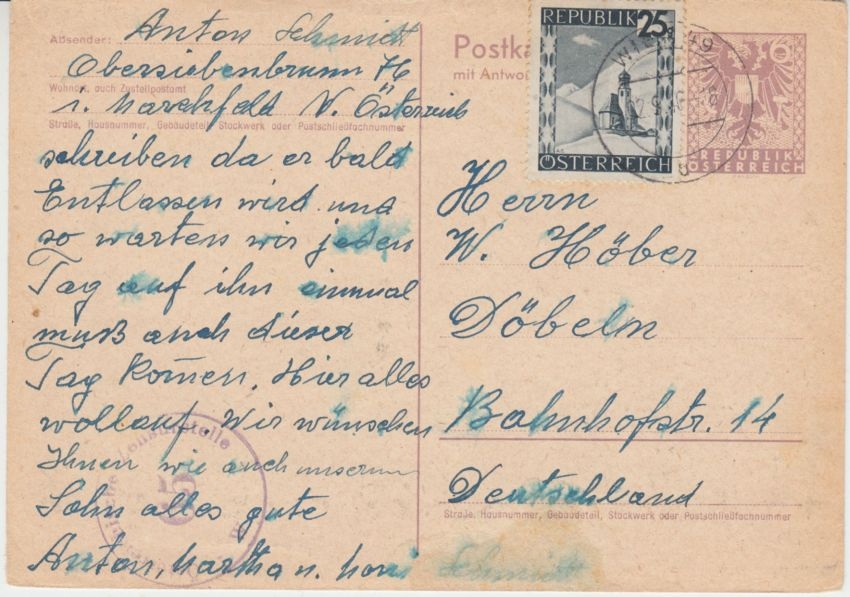 Absender: Anton Schmidt
Obersiebenbrunn 76
Wohnort, auch Zustellpostamt
i. Marchfeld N. Österreich
Straße, Hausnummer, Gebäudeteil, Stockwerk oder Postschließfachnummer
schreiben da er bald
Entlassen wird und
so warten wir jeden
Tag auf ihn einmal
muß auch dieser
Tag kom̄en. Hier alles
wollauf. Wir wünschen
Ihnen wie auch unserm
Sohn alles gute
Anton, Martha u. Schmidt
Postka
mit Antwo
REPUBLIK 25
ÖSTERREICH
WIEN 49
REPUBLIK
ÖSTERREICH
Herrn
W. Höber
Döbeln
Bahnhofstr. 14
Deutschland
Straße, Hausnummer, Gebäudeteil, Stockwerk oder Postschließfachnummer